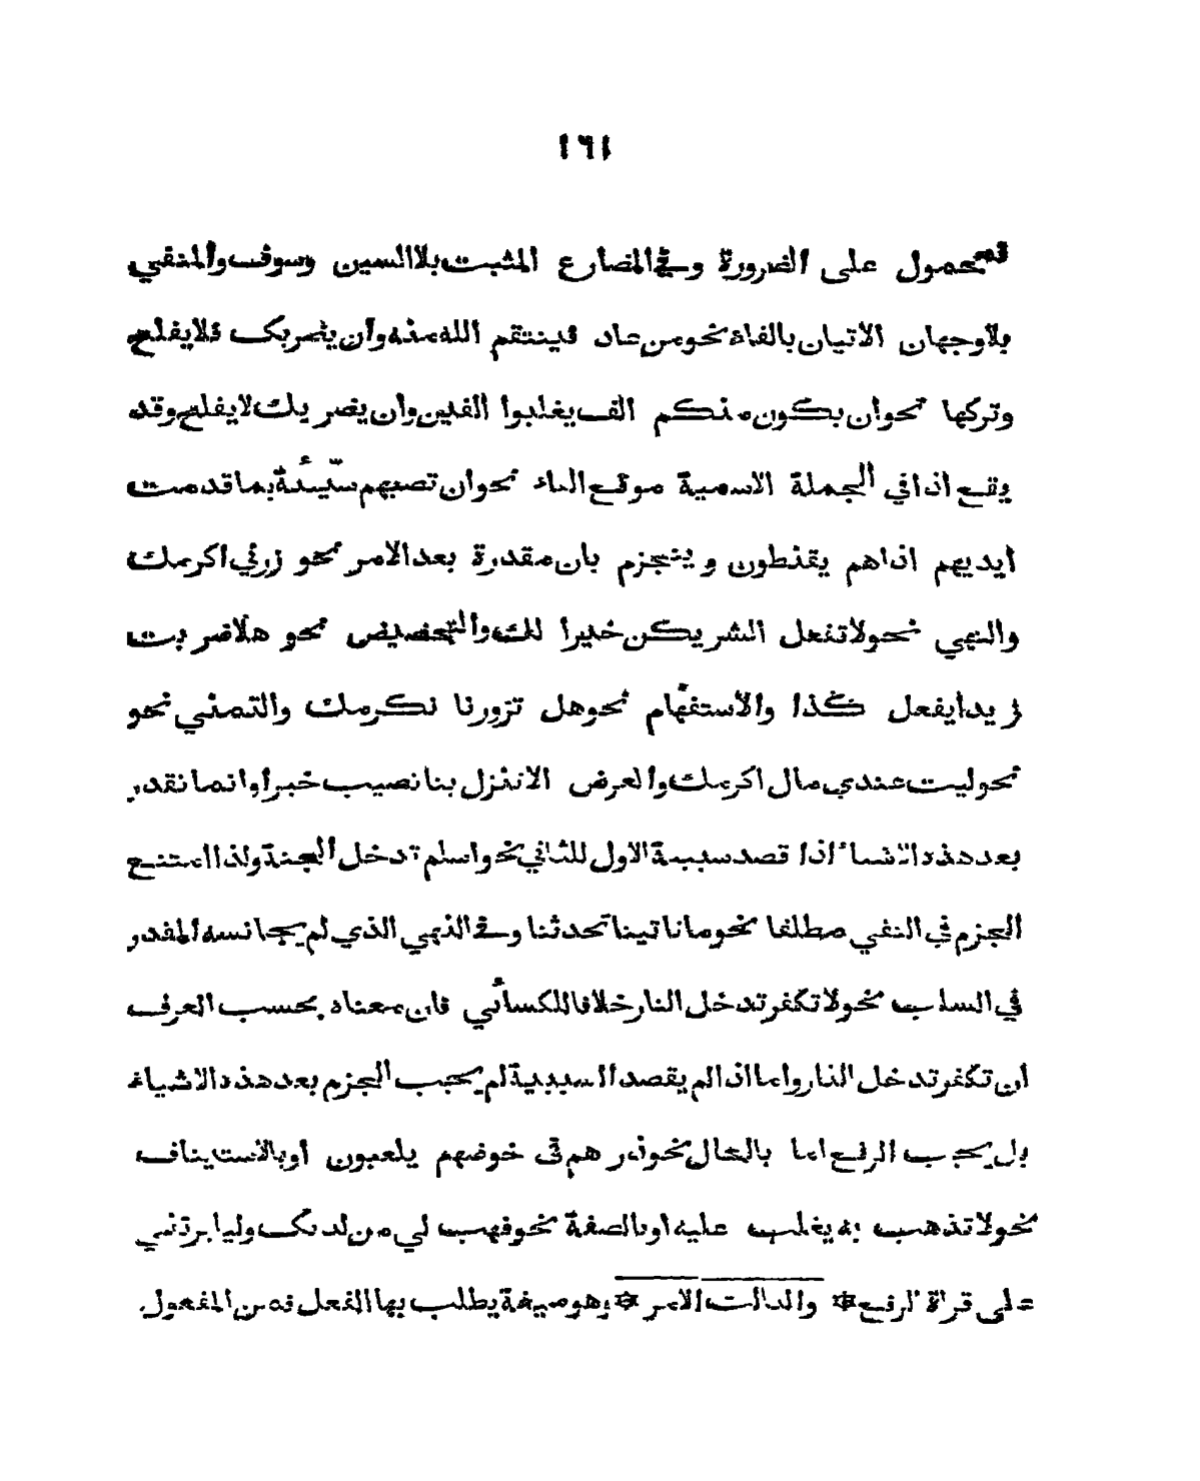 ١٦١
فمحمول على الضرورة وفي المضارع المثبت بلا السين وسوف والمنفي
بلا وجهان الاتيان بالفاء نحو من عاد فينتقم الله منه وان يضربك فلا يفلح
وتركها نحو ان يكون منكم الف يغلبوا الفين وان يضربك لا يفلح وقد
يقع اذا في الجملة الاسمية موقع الفاء نحو ان تصبهم سيّئة بما قدمت
ايديهم اذا هم يقنطون وينجزم بان مقدرة بعد الامر نحو زرني اكرمك
والنهي نحو لا تفعل الشر يكن خيرا لك والتحضيض نحو هلا ضربت
زيدا يفعل كذا والاستفهام نحو هل تزورنا نكرمك والتمني نحو
نحو ليت عندي مال اكرمك والعرض الا تنزل بنا نصيب خيرا وانما نقدر
بعد هذه الاشياء اذا قصد سببية الاول للثاني نحو اسلم تدخل الجنة ولذا امتنع
الجزم في النفي مطلقا نحو ما تاتينا تحدثنا وفي النهي الذي لم يجانسه المقدر
في السلب نحو لا تكفر تدخل النار خلافا للكسائي فان معناه بحسب العرف
ان تكفر تدخل النار واما اذا لم يقصد السببية لم يجب الجزم بعد هذه الاشياء
بل يجب الرفع اما بالحال نحو ذرهم في خوضهم يلعبون او بالاستيناف
نحو لا تذهب به يغلب عليه او بالصفة نحو فهب لي من لدنك وليا يرثني
على قراة الرفع * والثالث الامر * وهو صيغة يطلب بها الفعل من المفعول